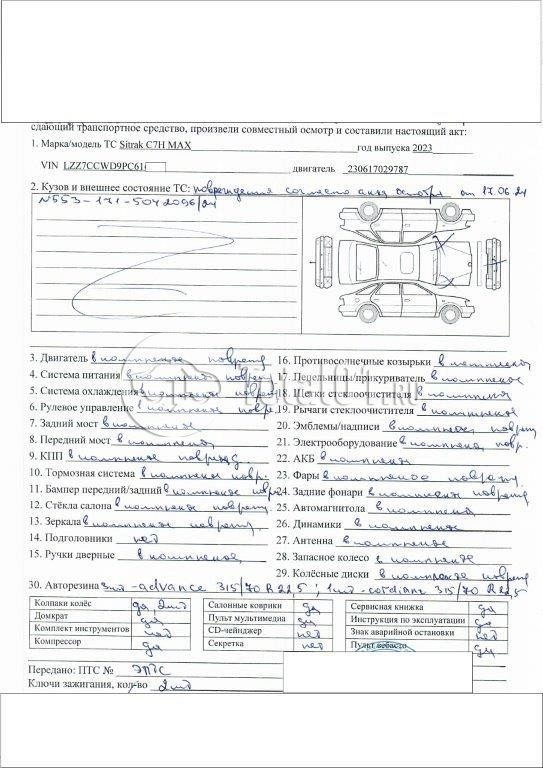 сдающий транспортное средство, произвели совместный осмотр и составили настоящий акт:
1. Марка/модель ТС Sitrak C7H MAX год выпуска 2023
VIN LZZ7CCWD9PC61 двигатель 230617029787
2. Кузов и внешнее состояние ТС: повреждения согласно акта осмотра от 17.06.24
N553-171-5042096/24
3. Двигатель в комплекте поврежд
4. Система питания в комплекте поврежд
5. Система охлаждения в комплекте поврежд
6. Рулевое управление в комплекте повре.
7. Задний мост в комплекте
8. Передний мост в комплекте
9. КПП в комплекте поврежд
10. Тормозная система в комплекте повр.
11. Бампер передний/задний в комплекте повре
12. Стёкла салона в комплекте поврежд.
13. Зеркала в комплекте поврежд
14. Подголовники нет
15. Ручки дверные в комплекте
16. Противосолнечные козырьки в комплекте
17. Пепельницы/прикуриватель в комплекте
18. Щетки стеклоочистителя в комплекте
19. Рычаги стеклоочистителя в комплекте
20. Эмблемы/надписи в комплекте, поврежд
21. Электрооборудование в комплекте, повр.
22. АКБ в комплекте
23. Фары в комплекте поврежд
24. Задние фонари в комплекте поврежд
25. Автомагнитола в комплекте
26. Динамики в комплекте
27. Антенна в комплекте
28. Запасное колесо в комплекте
29. Колёсные диски в комплекте поврежд
30. Авторезина 3шт-advance 315/70 R22,5; 1шт- 315/70 R22,5
Колпаки колёс да 2шт Салонные коврики да Сервисная книжка да
Домкрат да Пульт мультимедиа да Инструкция по эксплуатации да
Комплект инструментов нет CD-чейнджер нет Знак аварийной остановки нет
Компрессор да Секретка нет Пульт вебасто да
Передано: ПТС № ЭПТС
Ключи зажигания, кол-во 2шт